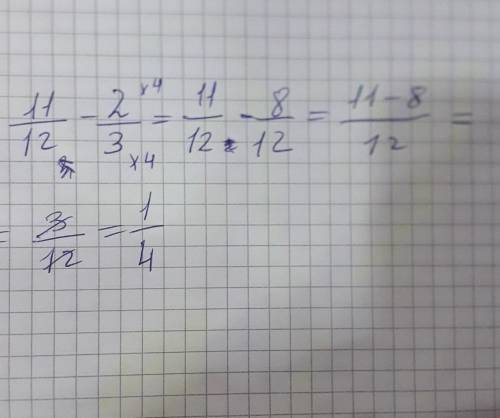 11/12 - 2×4/3×4 = 11/12 - 8/12 = 11-8/12 =
= 3/12 = 1/4